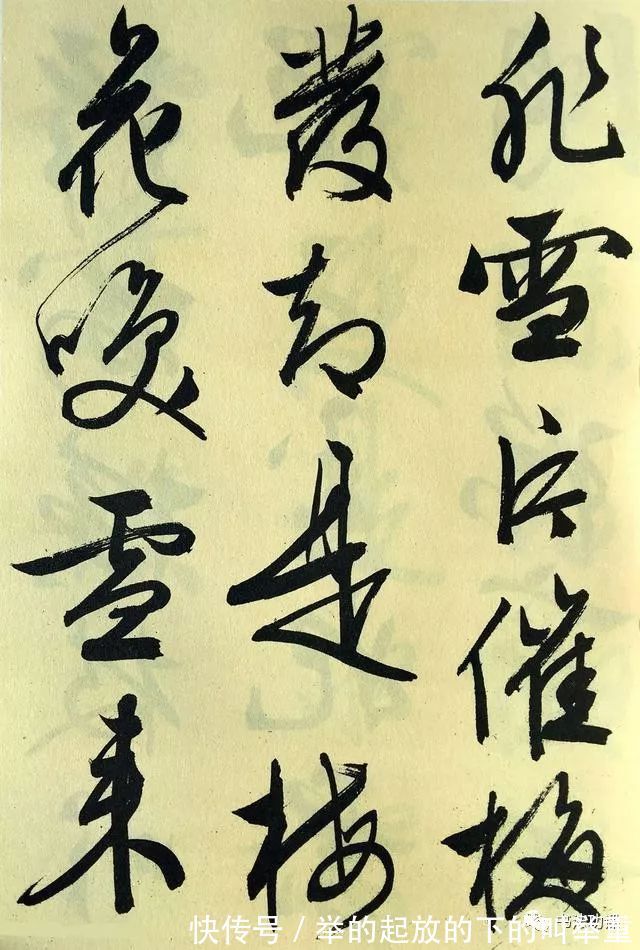 飛雪片催梅
發却是梅
花喚雪来
快传号 / 举的起放的下的叫举重